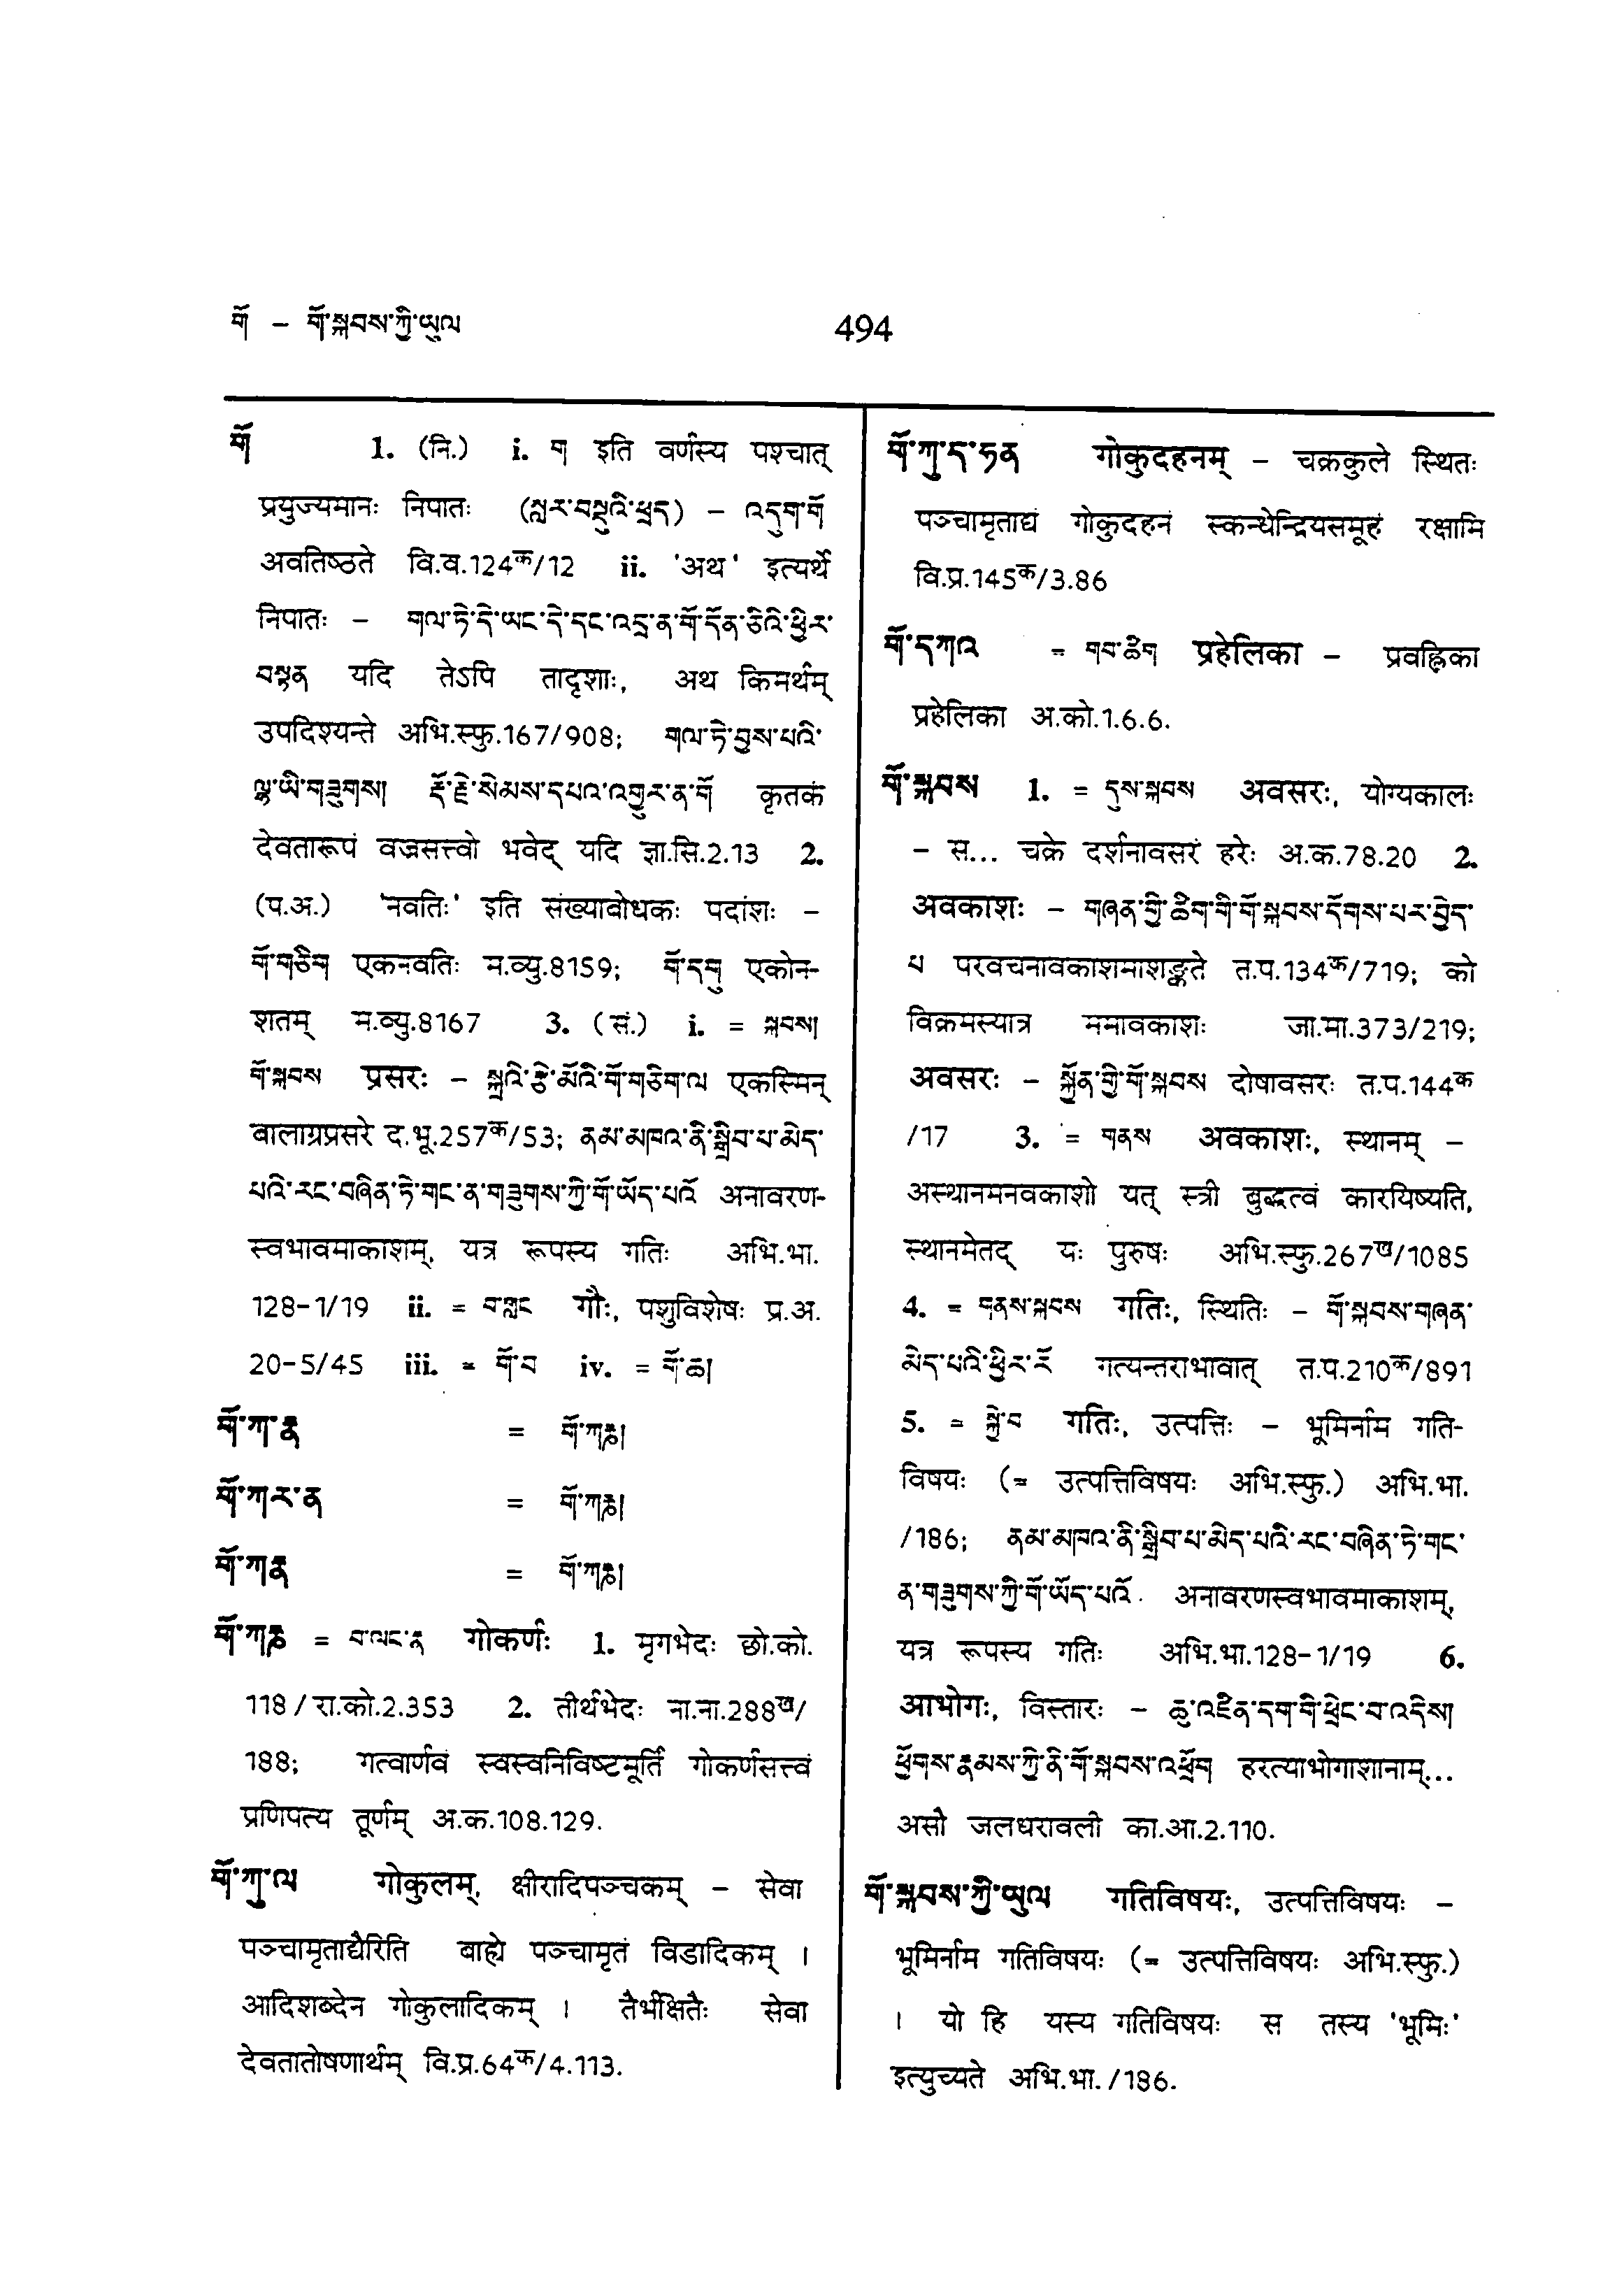 གོ – གོ་སྐབས་ཀྱི་ཡུལ
494
གོ 1. (नि.) i. ག इति वर्णस्य पश्चात्
प्रयुज्यमानः निपातः (སླར་བསྡུའི་ཕྲད) – འདུག་གོ
अवतिष्ठते वि.व.124क/12 ii. 'अथ' इत्यर्थे
निपातः – གལ་ཏེ་དེ་ཡང་དེ་དང་འདྲ་ན་གོ་དོན་ཅིའི་ཕྱིར་
བསྟན यदि तेऽपि तादृशाः, अथ किमर्थम्
उपदिश्यन्ते अभि.स्फु.167/908; གལ་ཏེ་བྱས་པའི་
ལྷ་ཡི་གཟུགས། རྡོ་རྗེ་སེམས་དཔའ་འགྱུར་ན་གོ कृतकं
देवतारूपं वज्रसत्त्वो भवेद् यदि ज्ञा.सि.2.13 2.
(प.अ.) 'नवतिः' इति संख्याबोधकः पदांशः –
གོ་གཅིག एकनवतिः म.व्यु.8159; གོ་དགུ एकोन-
शतम् म.व्यु.8167 3. (सं.) i. = སྐབས།
གོ་སྐབས प्रसरः – སྐྲའི་རྩེ་མོའི་གོ་གཅིག་ལ एकस्मिन्
बालाग्रप्रसरे द.भू.257क/53; ནམ་མཁའ་ནི་སྒྲིབ་པ་མེད་
པའི་རང་བཞིན་ཏེ་གང་ན་གཟུགས་ཀྱི་གོ་ཡོད་པའོ अनावरण-
स्वभावमाकाशम्, यत्र रूपस्य गतिः अभि.भा.
128-1/19 ii. = བ་གླང गौः, पशुविशेषः प्र.अ.
20-5/45 iii. = གོ་བ iv. = གོ་ཆ།
གོ་ཀ་རྣ = གོ་ཀརྞ།
གོ་ཀར་ན = གོ་ཀརྞ།
གོ་ཀརྣ = གོ་ཀརྞ།
གོ་ཀརྞ = བ་ལང་རྣ गोकर्णः 1. मृगभेदः छो.को.
118/रा.को.2.353 2. तीर्थभेदः ना.ना.288ख/
188; गत्वार्णवं स्वस्वनिविष्टमूर्तिं गोकर्णसत्त्वं
प्रणिपत्य तूर्णम् अ.क.108.129.
གོ་ཀུ་ལ गोकुलम्, क्षीरादिपञ्चकम् – सेवा
पञ्चामृताद्यैरिति बाह्ये पञ्चामृतं विडादिकम् ।
आदिशब्देन गोकुलादिकम् । तैर्भक्षितैः सेवा
देवतातोषणार्थम् वि.प्र.64क/4.113.
གོ་ཀུ་ད་ཧན गोकुदहनम् – चक्रकुले स्थितः
पञ्चामृताद्यं गोकुदहनं स्कन्धेन्द्रियसमूहं रक्षामि
वि.प्र.145क/3.86
གོ་དཀའ = གབ་ཚིག प्रहेलिका – प्रवह्लिका
प्रहेलिका अ.को.1.6.6.
གོ་སྐབས 1. = དུས་སྐབས अवसरः, योग्यकालः
– स... चक्रे दर्शनावसरं हरेः अ.क.78.20 2.
अवकाशः – གཞན་གྱི་ཚིག་གི་གོ་སྐབས་དོགས་པར་བྱེད་
པ परवचनावकाशमाशङ्कते त.प.134क/719; को
विक्रमस्यात्र ममावकाशः जा.मा.373/219;
अवसरः – སྐྱོན་གྱི་གོ་སྐབས दोषावसरः त.प.144क
/17 3. = གནས अवकाशः, स्थानम् –
अस्थानमनवकाशो यत् स्त्री बुद्धत्वं कारयिष्यति,
स्थानमेतद् यः पुरुषः अभि.स्फु.267ख/1085
4. = གནས་སྐབས गतिः, स्थितिः – གོ་སྐབས་གཞན་
མེད་པའི་ཕྱིར་རོ गत्यन्तराभावात् त.प.210क/891
5. = སྐྱེ་བ गतिः, उत्पत्तिः – भूमिर्नाम गति-
विषयः (= उत्पत्तिविषयः अभि.स्फु.) अभि.भा.
/186; ནམ་མཁའ་ནི་སྒྲིབ་པ་མེད་པའི་རང་བཞིན་ཏེ་གང་
ན་གཟུགས་ཀྱི་གོ་ཡོད་པའོ अनावरणस्वभावमाकाशम्,
यत्र रूपस्य गतिः अभि.भा.128-1/19 6.
आभोगः, विस्तारः – ཆུ་འཛིན་དག་གི་ཕྲེང་བ་འདིས།
ཕྱོགས་རྣམས་ཀྱི་ནི་གོ་སྐབས་འཕྲོག हरत्याभोगाशानाम्...
असौ जलधरावली का.आ.2.110.
གོ་སྐབས་ཀྱི་ཡུལ गतिविषयः, उत्पत्तिविषयः –
भूमिर्नाम गतिविषयः (= उत्पत्तिविषयः अभि.स्फु.)
। यो हि यस्य गतिविषयः स तस्य 'भूमिः'
इत्युच्यते अभि.भा./186.